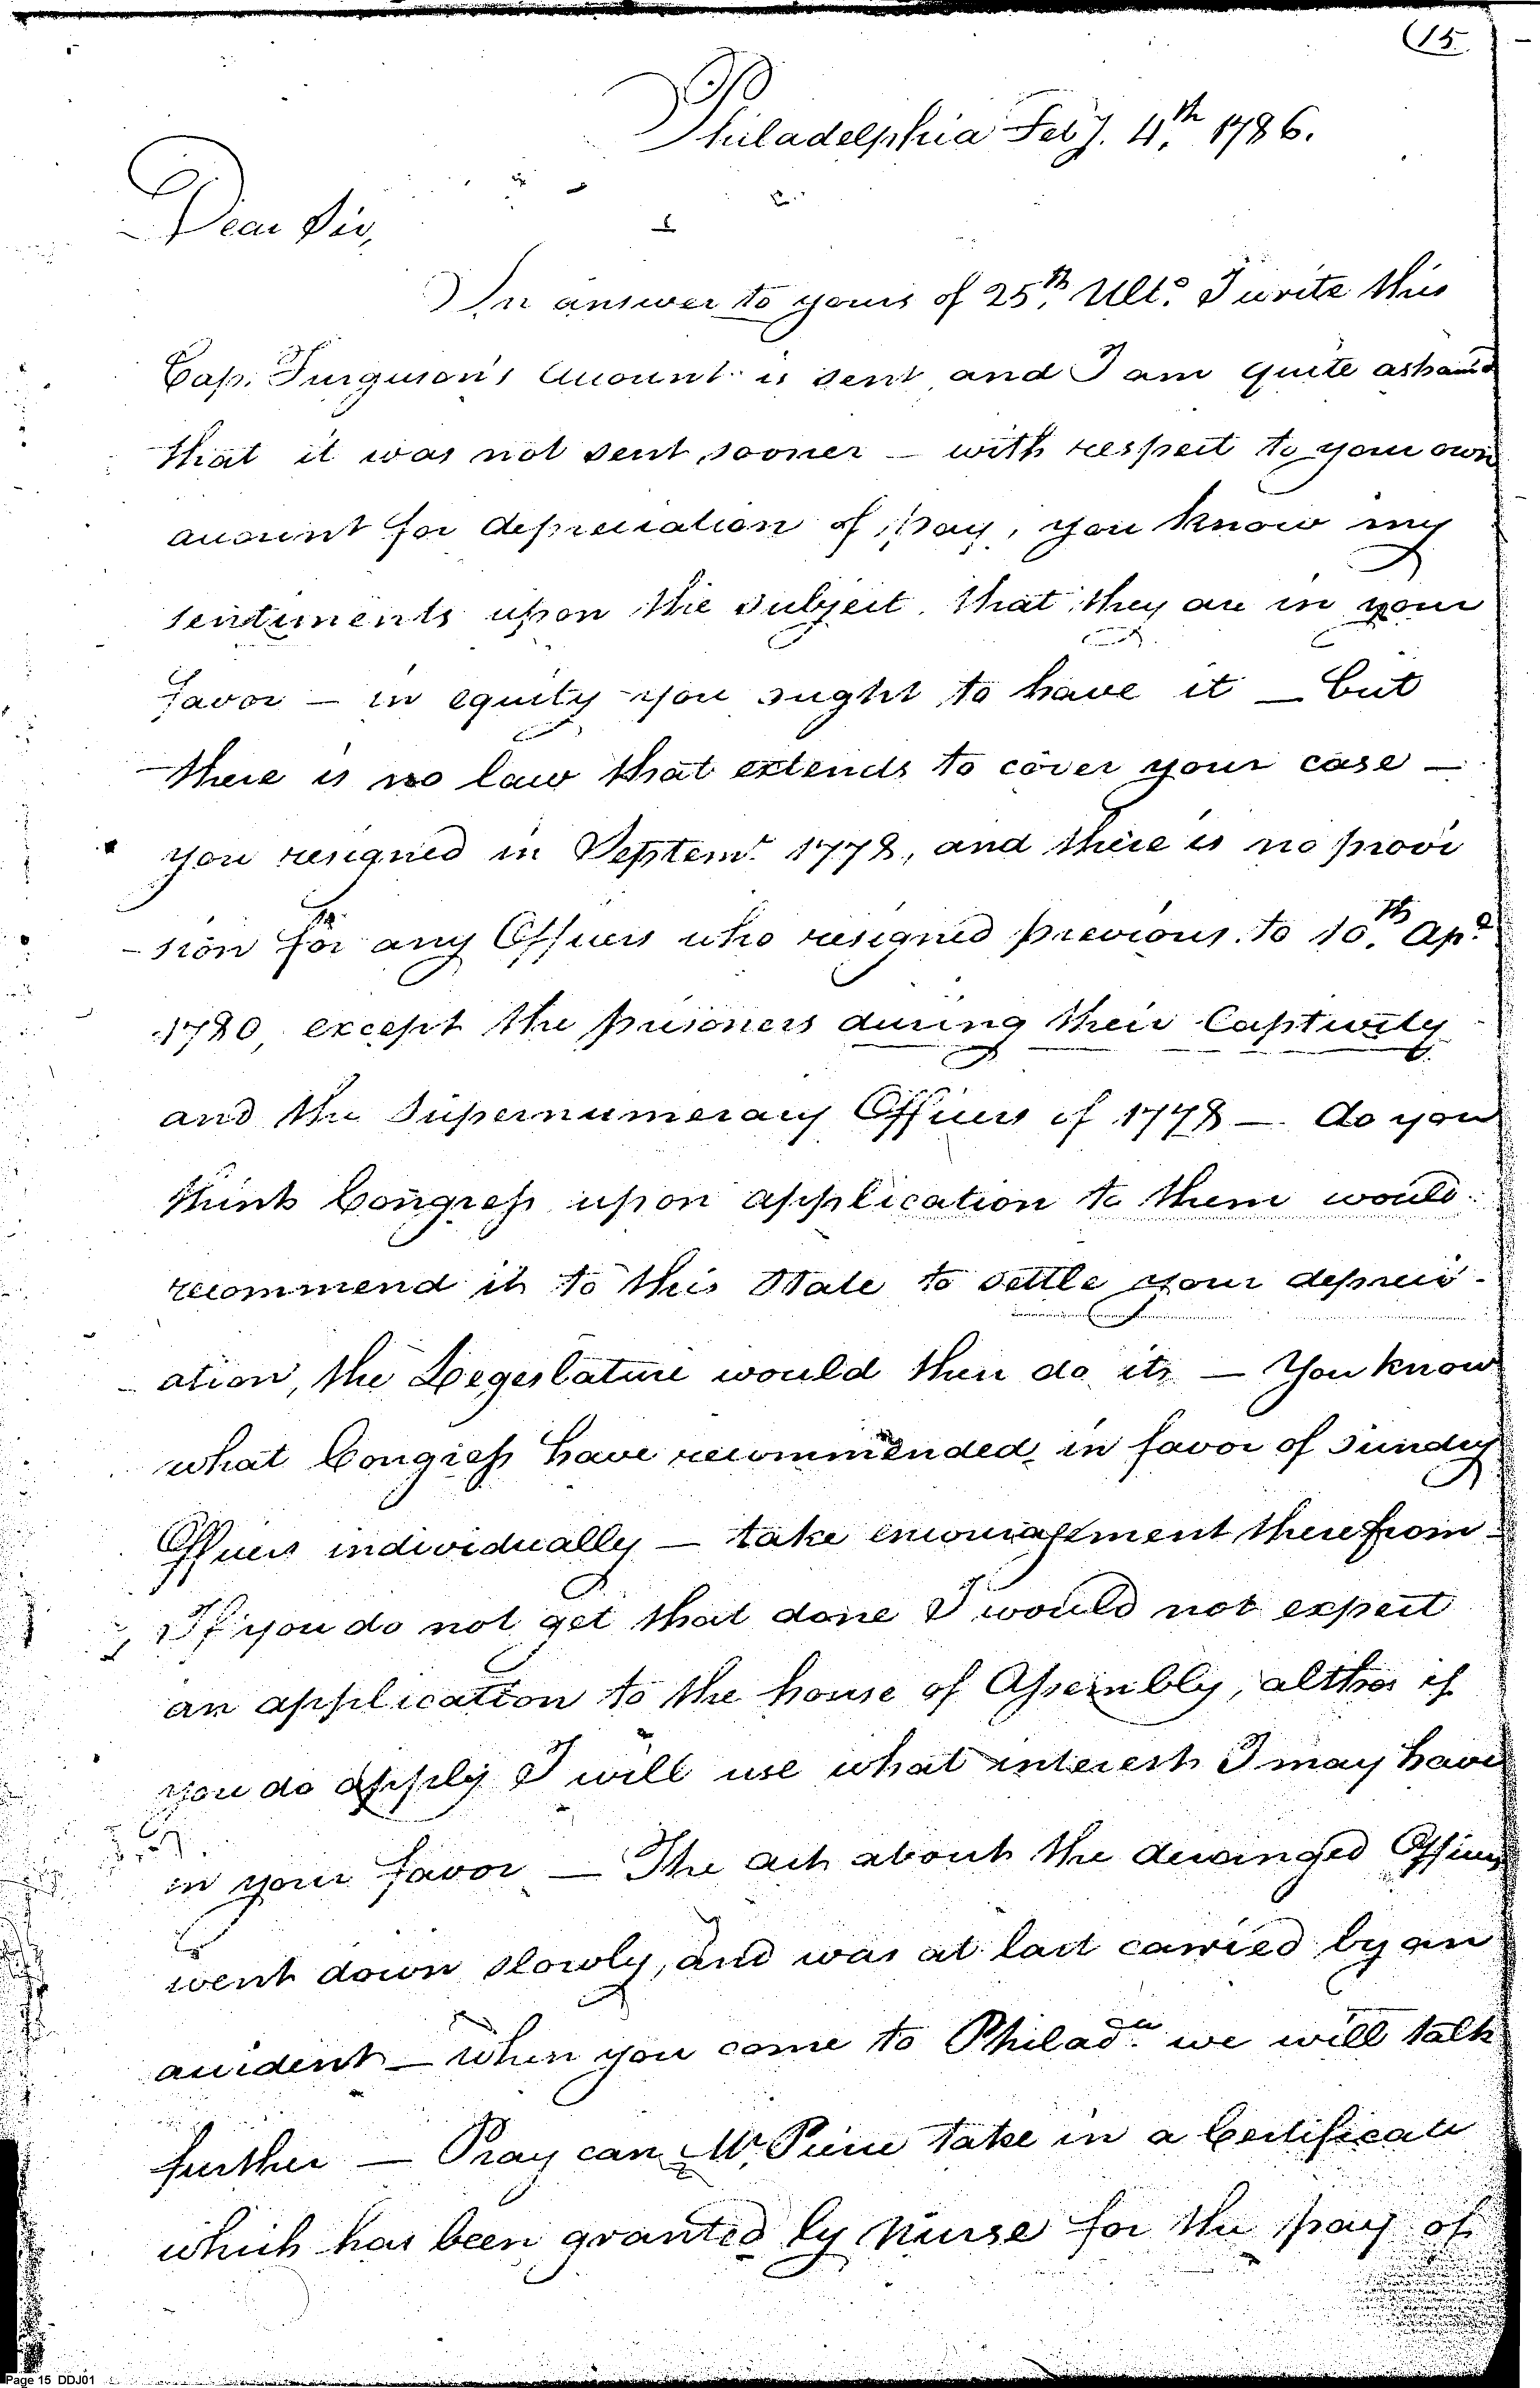 (15
Philadelphia Feby. 4th 1786.
Dear Sir,
In answer to yours of 25th Ulto. I write this
Cap. Furguson's Account is sent, and I am quite asham'd
that it was not sent sooner — with respect to your own
account for depreciation of pay, you know my
sentiments upon the subject. that they are in your
favor — in equity you ought to have it — but
there is no law that extends to cover your case —
you resigned in Septemr. 1778, and there is no provi
-sion for any Officers who resigned previous to 10th Apl.
1780, except the prisoners during their Captivity
and the Supernumerary Officers of 1778 — do you
think Congress upon application to them would
recommend it to this State to settle your depreci-
ation, the Legeslature would then do it — You know
what Congress have recommended in favor of sundry
Officers individually — take encouragement therefrom —
If you do not get that done I would not expect
an application to the house of Assembly, altho if
you do apply I will use what interest I may have
in your favor — The act about the deranged Officers
went down slowly, and was at last carried by an
accident — when you come to Philada. we will talk
further — Pray can Mr. Pierce take in a Certificate
which has been granted by Nurse for the pay of
Page 15 DDJ01